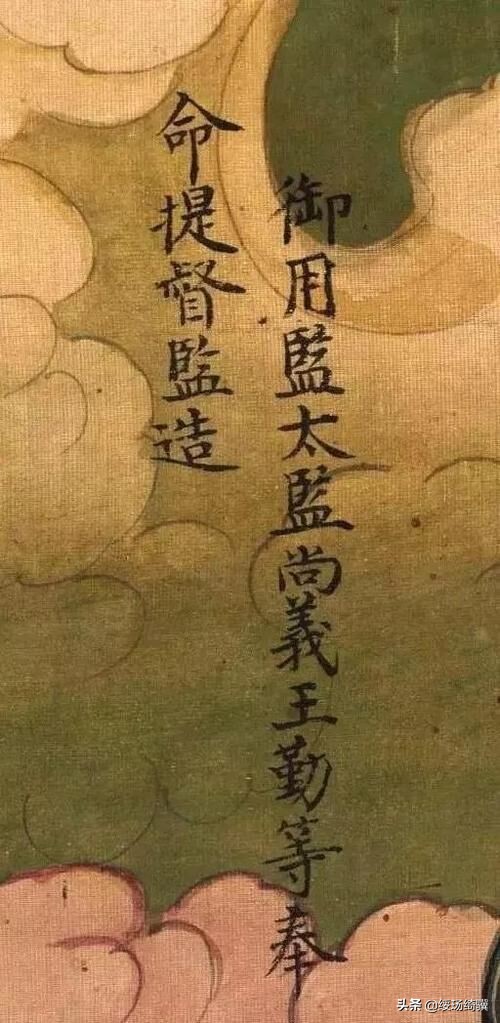 御用監太監尚義王勤等奉
命提督監造
头条 @绥场绮骥